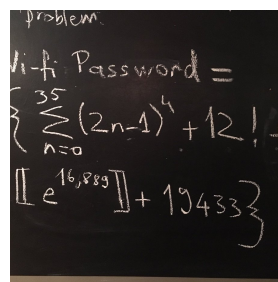 problem.
Wi-fi Password =
{ 35 Σ n=0 (2n-1)^4 + 12! -
[[ e^16,889 ]] + 19433}